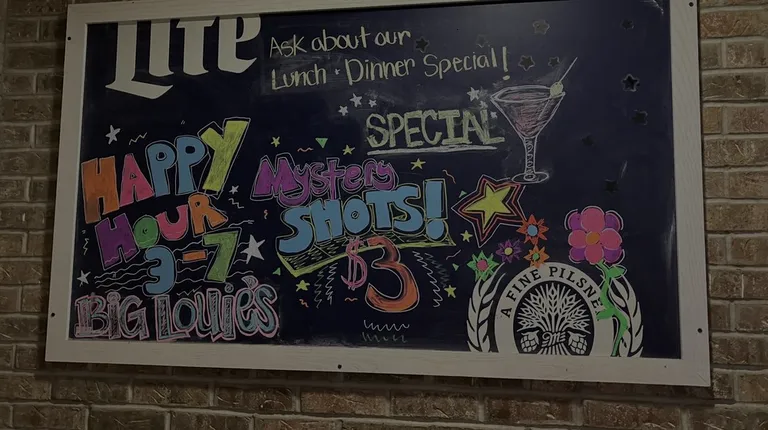 Lite
Ask about our
Lunch · Dinner Special!
SPECIAL
HAPPY
HOUR
3-7
BIG LOUIE'S
Mystery
SHOTS!
$3
A FINE PILSNER